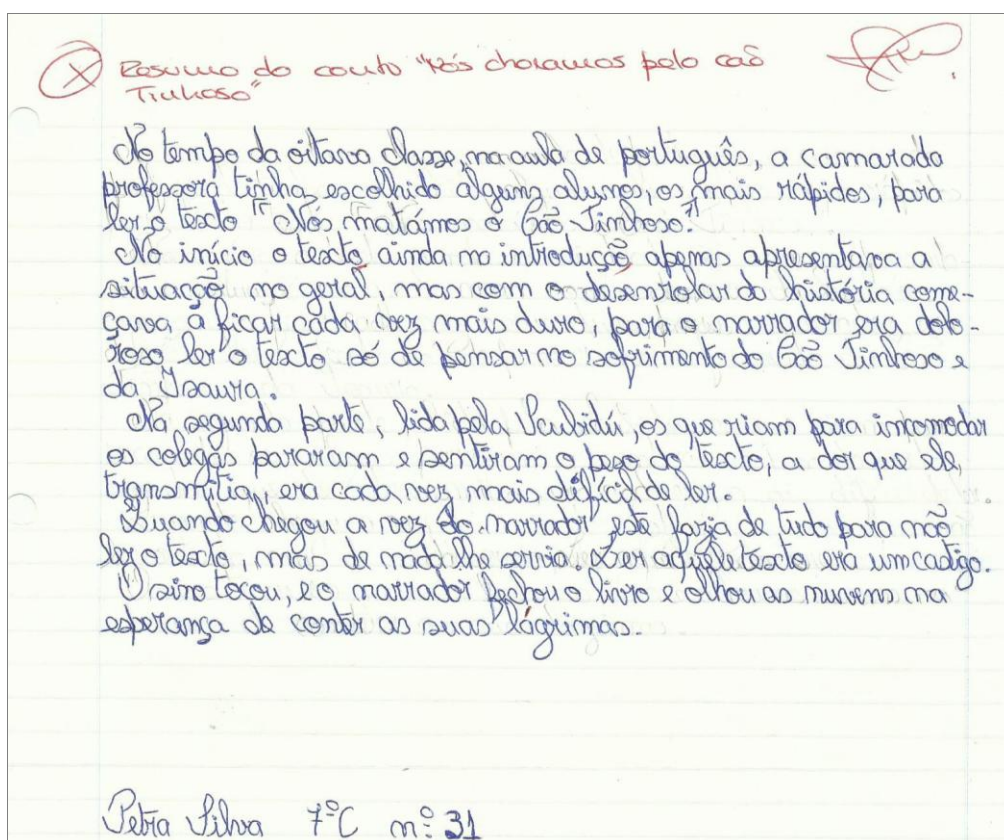 X Resumo do conto "Nós choramos pelo cão
Tinhoso"
No tempo da oitava classe, na aula de português, a camarada
professora tinha escolhido alguns alunos, os mais rápidos, para
ler o texto "Nós matámos o Cão Tinhoso".
No início o texto ainda na introdução apenas apresentava a
situação no geral, mas com o desenrolar da história come-
çava a ficar cada vez mais duro, para o narrador era dolo-
roso ler o texto só de pensar no sofrimento do Cão Tinhoso e
da Isaura.
Na segunda parte, lida pela Scubidú, os que riam para incomodar
os colegas pararam e sentiram o peso do texto, a dor que ele,
transmitia, era cada vez mais difícil de ler.
Quando chegou a vez do narrador este fazia de tudo para não
ler o texto, mas de nada lhe servia. Ler aquele texto era um castigo.
O sino tocou, e o narrador fechou o livro e olhou as nuvens na
esperança de conter as suas lágrimas.
Petra Silva 7ºC nº 31